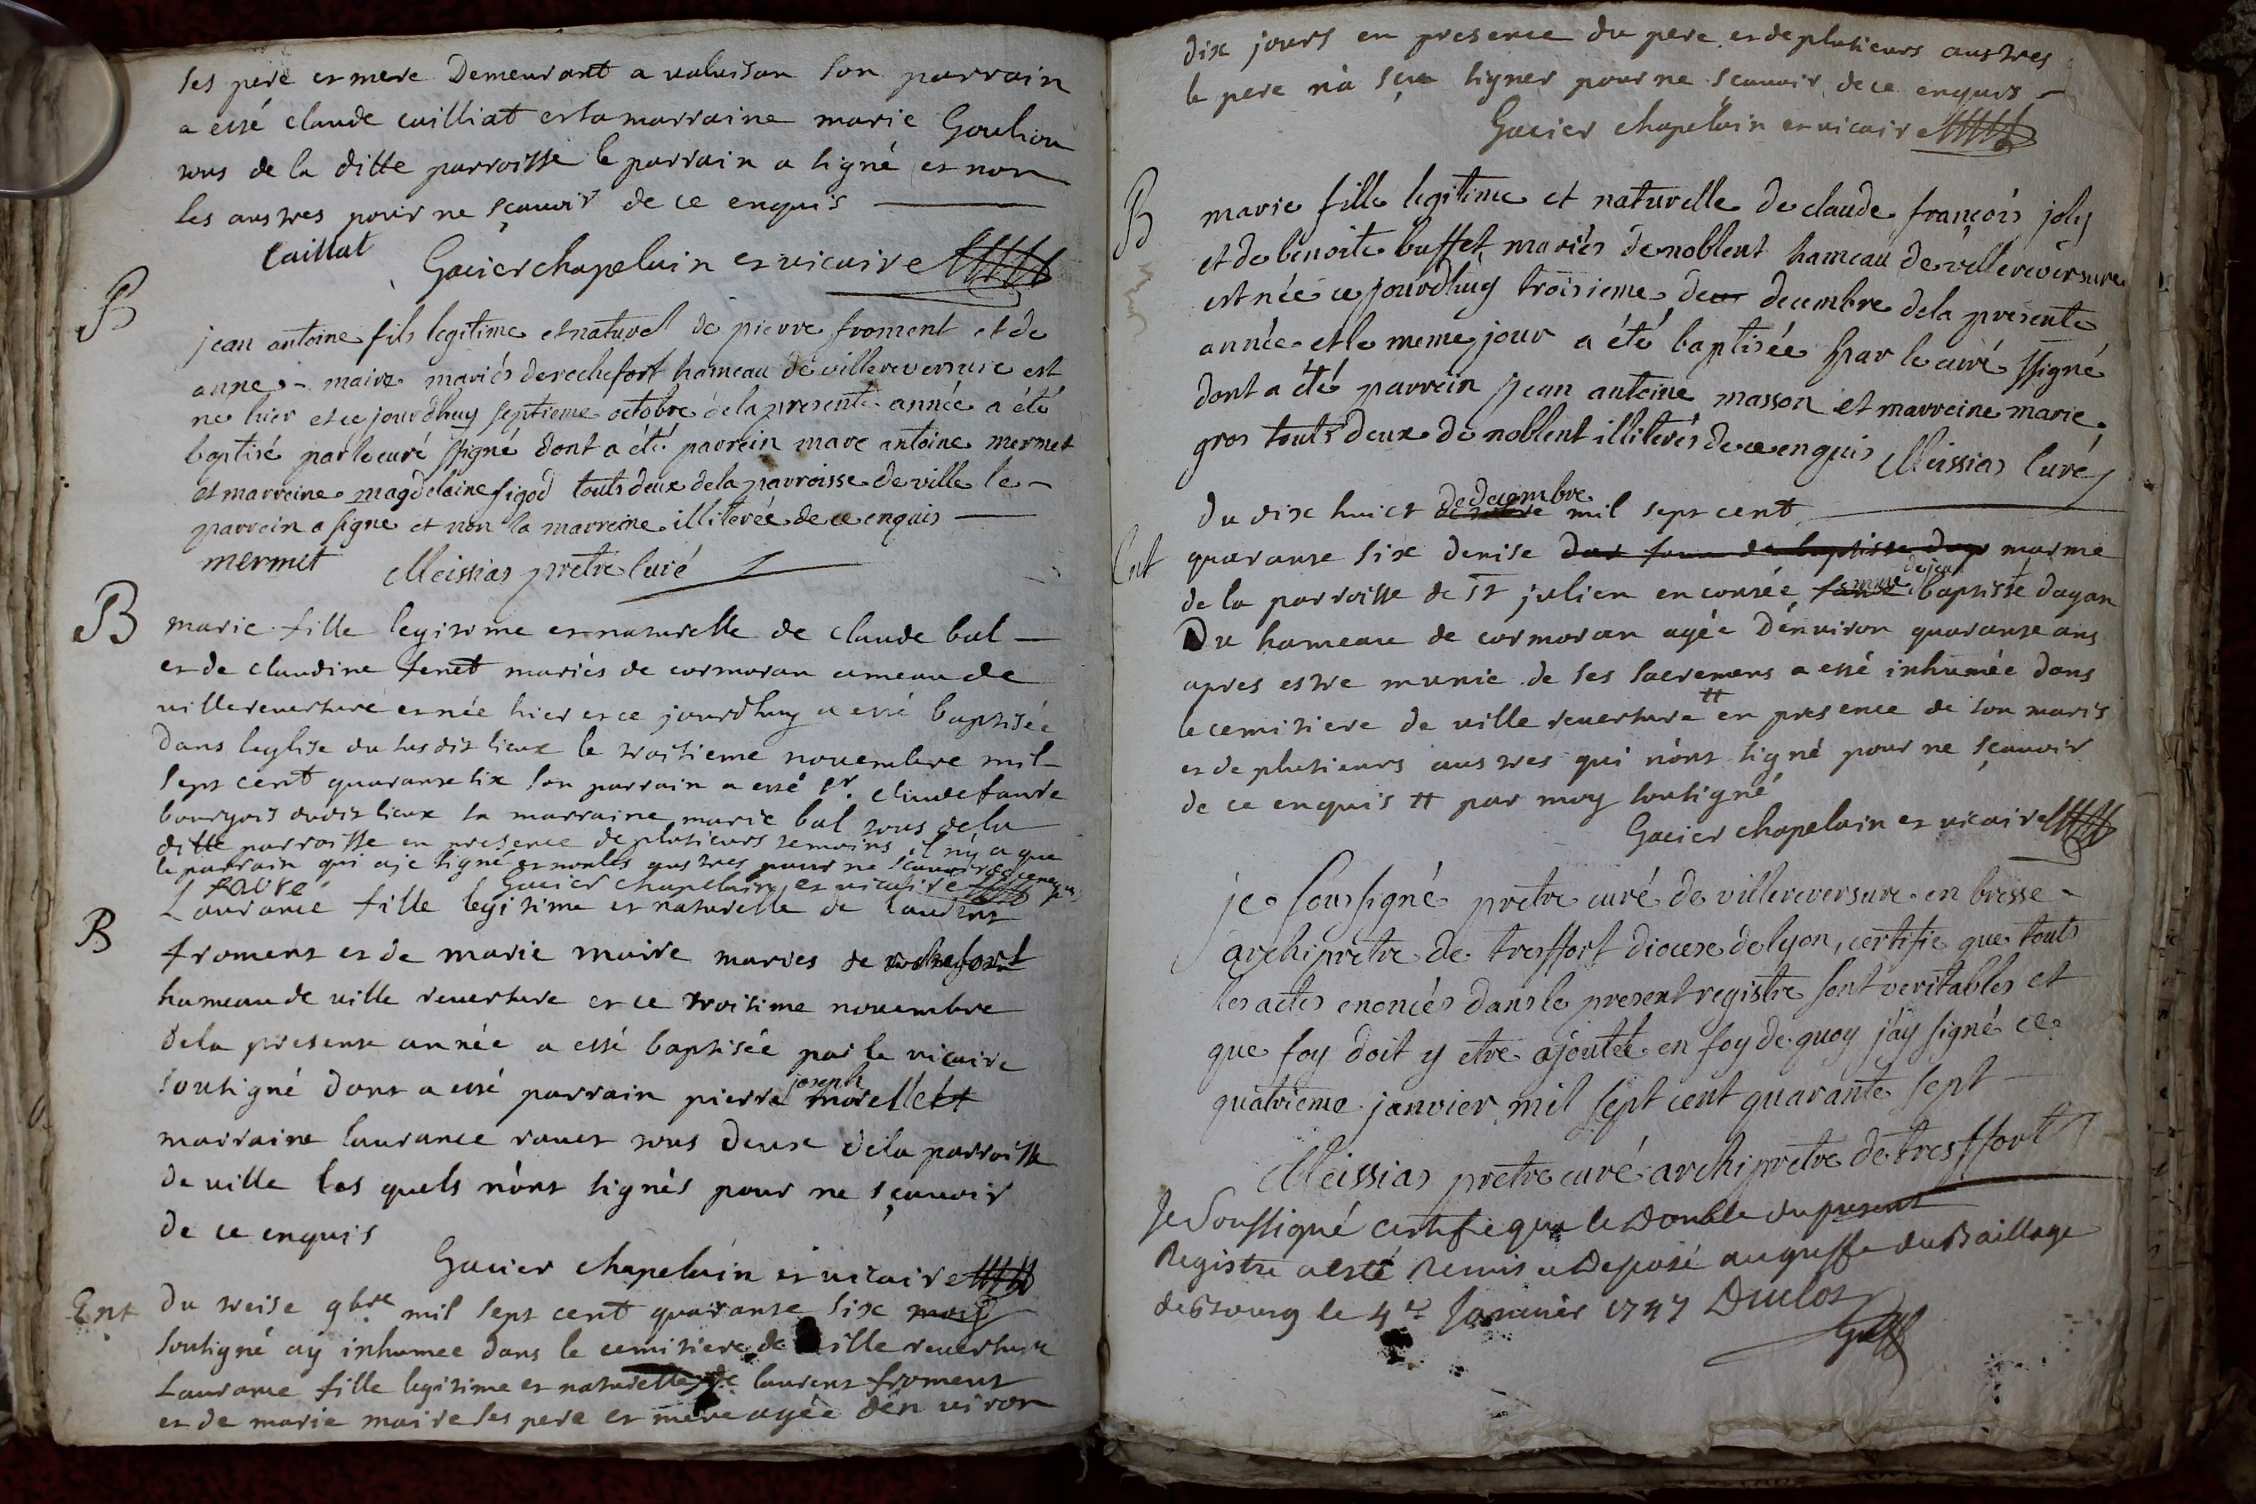 ses pere et mere Demeurant a valuisan son parrain
a esté claude cailliat et sa marraine marie Goulion
tous de la ditte parroisse le parrain a signé et non
les autres pour ne sçauoir de ce enquis
Caillat Gacier chapelain et vicaire
B
jean antoine fils legitime et naturel de pierre froment et de
anne maire mariés de rochefort hameau de villereversure est
ne hier et ce jourdhuy septieme octobre de la presente année a été
baptisé par le curé ssigné dont a été parrein marc antoine mermet
et marreine magdelaine figod touts deux de la parroisse de ville le
parrein a signe et non la marreine illiterée de ce enquis
mermet Meissias pretre curé
B
marie fille legitime et naturelle de claude bal
et de claudine fenet mariés de cormoran ameau de
villereuersure et née hier et ce jourdhuy a esté baptisée
dans leglise du susdit lieux le troisieme nouembre mil
sept cent quarante six son parrain a esté sr. claude faure
bourgois dudit lieux sa marraine marie bal tous de la
ditte parroisse en presence de plusieurs temoins il ny a que
le parrain qui aje signé et non les autres pour ne sçauoir de ce enquis
faure Gacier chapelain et vicaire
B
Laurance fille legitime et naturelle de laurent
froment et de marie maire maries de rochefort
hameau de ville reuersure et ce troisime nouembre
dela presente année a esté baptisée par le vicaire
soutigné dont a esté parrain pierre joseph morellet
marraine laurance rauet tous deux dela parroisse
de uille les quels nònt signés pour ne sçauoir
de ce enquis
Gacier chapelain et vicaire
Ent
du treise 9bre mil sept cent quarante six moy
soutigné ay inhumee dans le cemitiere de uille reuersure
Laurance fille legitime et naturelle de laurent froment
et de marie maire ses pere et mere agée dén uiron
dix jours en presence du pere et de plusieurs autres
le pere nà sçu signer pour ne scauoir de ce enquis
Gacier chapelain et vicaire
B
marie fille legitime et naturelle de claude françois joly
et de benoite buffet mariés de noblent hameau de villereversure
est née ce jourdhuy troisieme de decembre de la presente
année et le meme jour a été baptisée par le curé ssigné
dont a été parrein jean antoine masson et marreine marie
gros touts deux de noblent illiterés de ce enquis Meissias Curé
du dix huict de decembre mil sept cent
Ent
quarante six denise marme
de la parroisse de st julien en conrée femme de jean baptiste dagan
Du hameau de cormoran agée dénuiron quarante ans
apres estre munie de ses sacremens a esté inhumée dans
le cemitiere de ville reuersure # en presence de son maris
et de plusieurs autres qui nònt signé pour ne sçauoir
de ce enquis # par moy soutigné
Gacier chapelain et vicaire
je soussigné pretre curé de villereversure en bresse
archipretre de tresffort diocese de lyon, certifie que touts
les actes enoncés dans le present registre sont veritables et
que foy doit y etre ajoutée en foy de quoy j'ay signé ce
quatrieme janvier mil sept cent quarante sept
Meissias pretre curé archipretre de tresffort
Je Soussigné certifie que le Double du present
Registre a esté Remis et Deposé au greffe du Baillage
de Bourg le 4e Januier 1747 Duclos
Greff